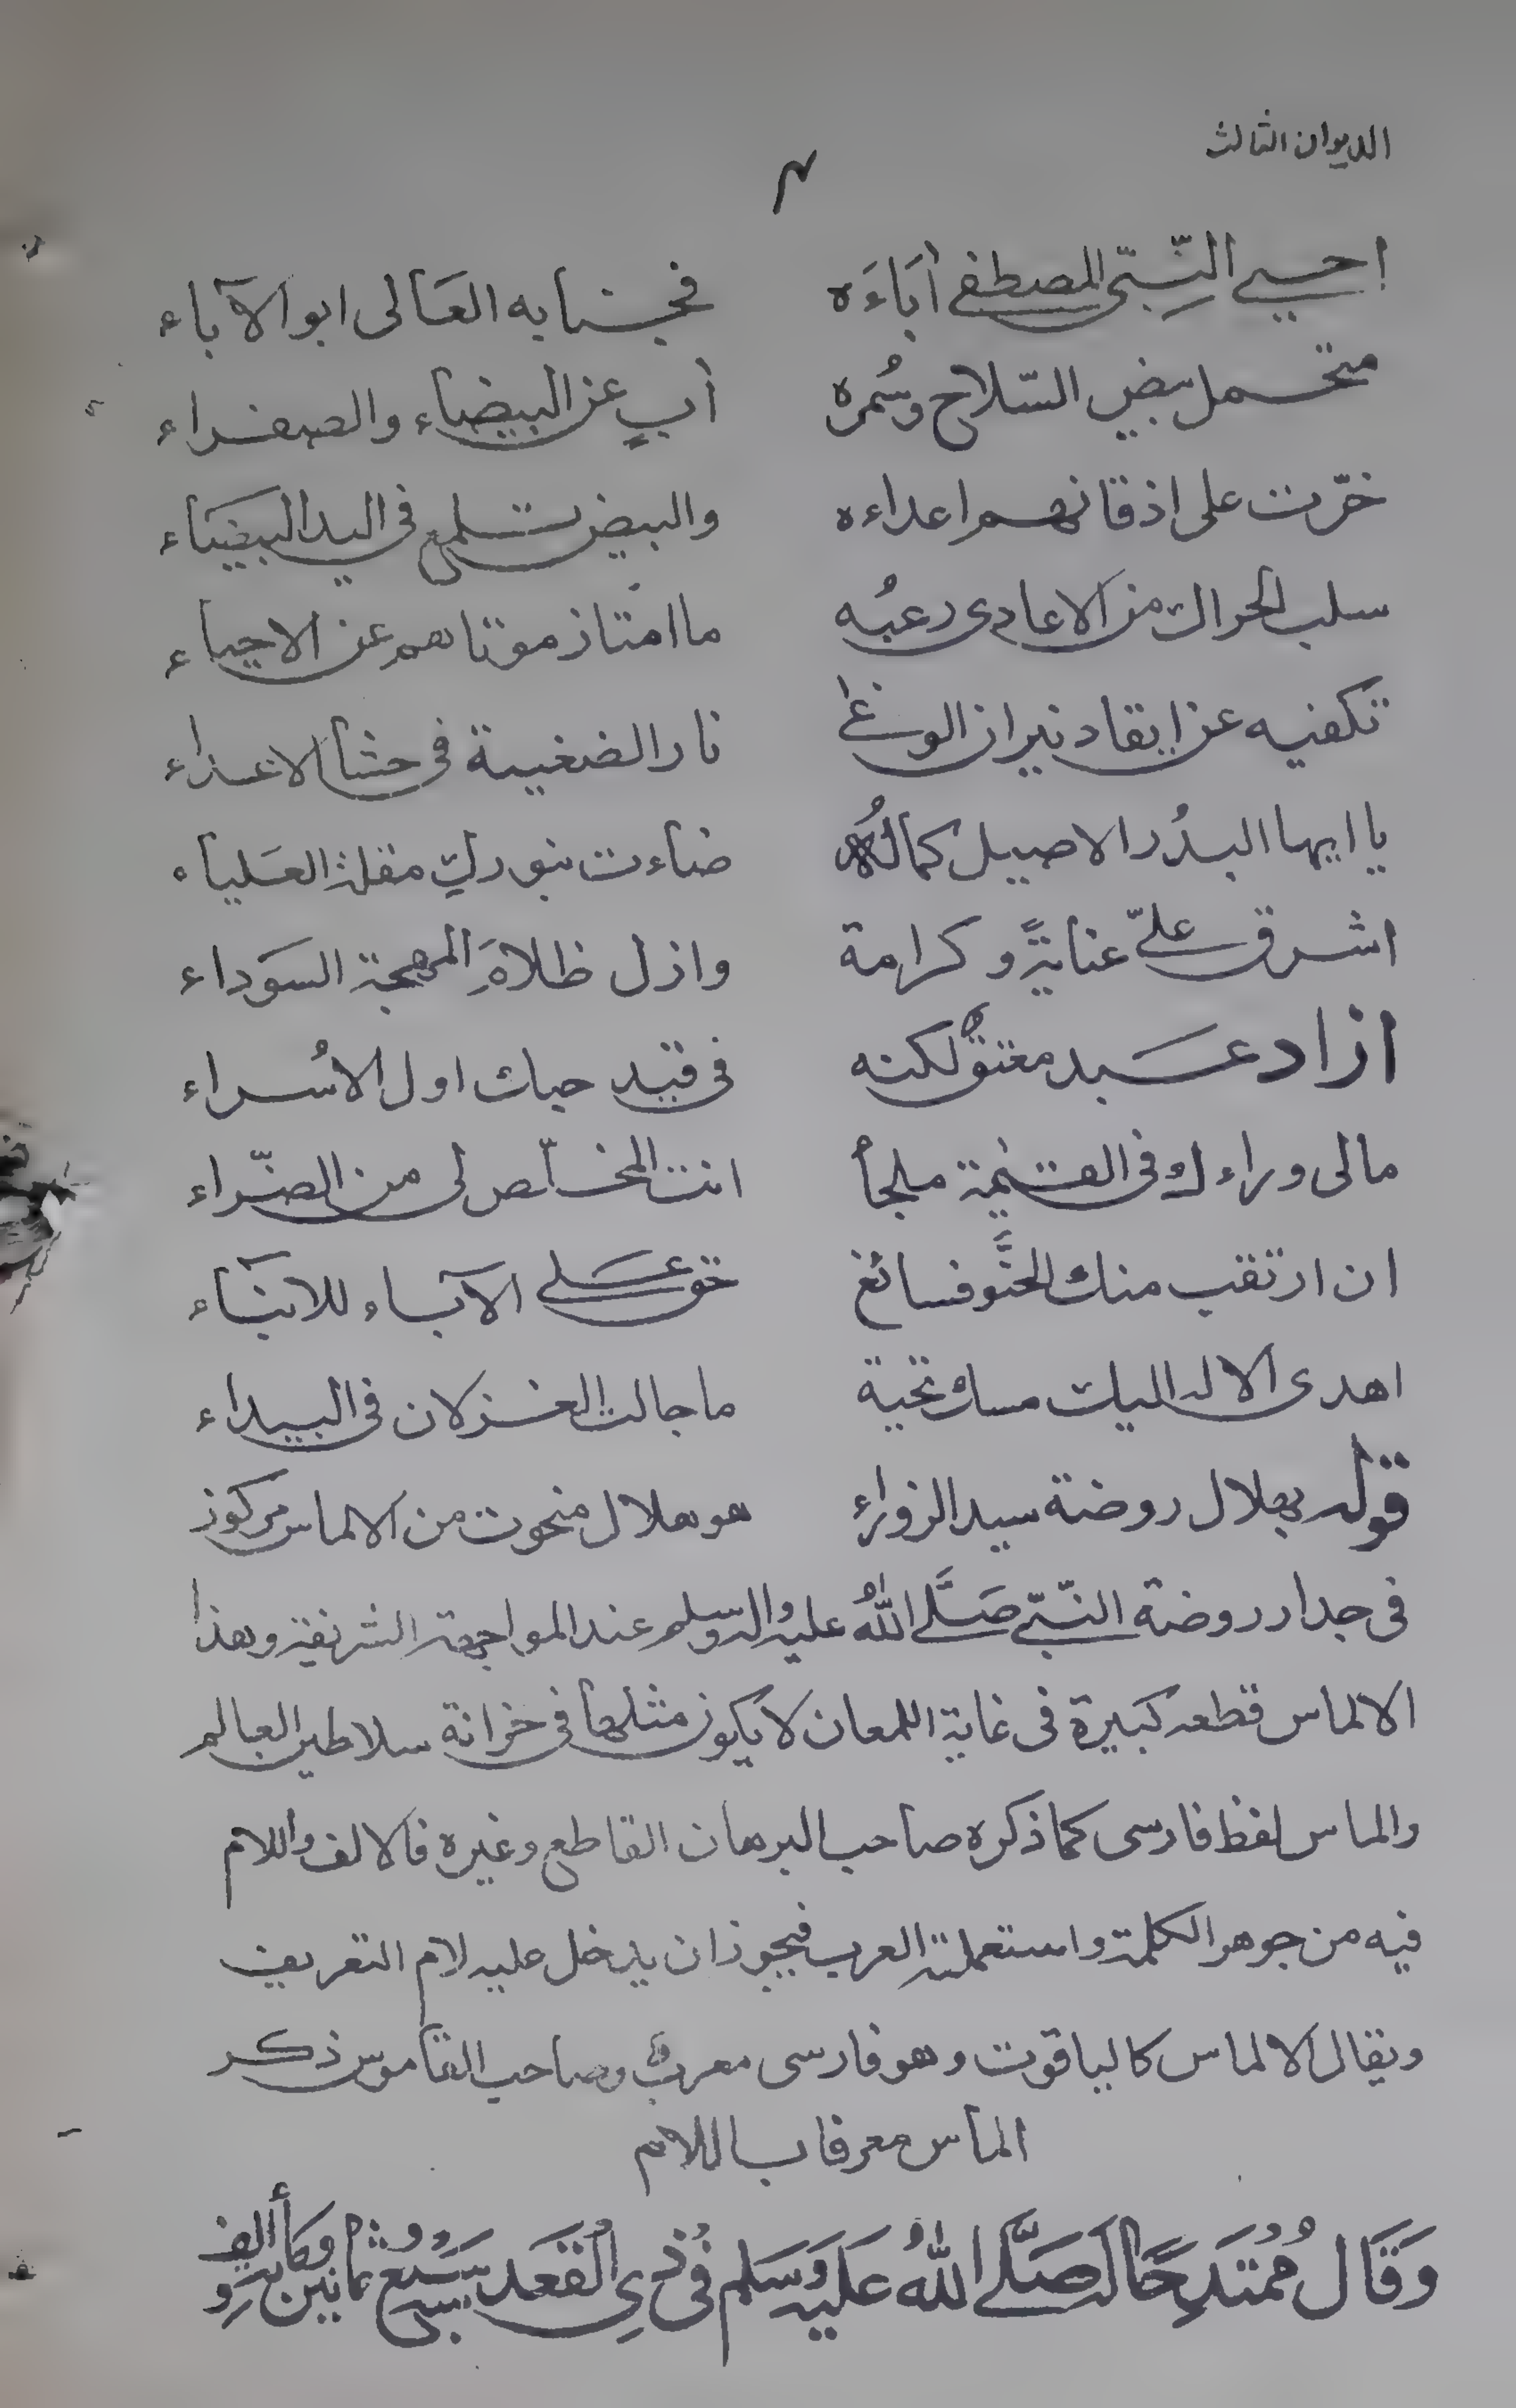 الديوان الثالث
٣
احيى النّبيّ المصطفى أبَاءَه فجنابه العَالى ابو الآباء
متحمل بيض السّلاح وسُمره أبٍ عن البيضاء والصفراء
خرّت على اذقانهم اعداءه والبيض تلمع في اليد البيضَاء
سلب الحراك من الاعادى رعبُه ما امتاز موتاهم عن الاحياء
تكفيه عن ايقاد نيران الوغا نار الضغينة فى حشا الاعداء
يا ايها البدُر الاصيل كمالُه ضاءت بنورك مقلة العَلياء
اشرق علىّ عنايةً وكرامة وازل ظلامَ المهجة السوَداء
ازاد عبد معتقٌ لكنه فى قيد حبك اول الاُسراء
مالى وراءك فى القيٰمة ملجأ انت المخلّص لى من الضّراء
ان ارتقب منك الحنَّو فسائغ حق على الآباء للابنَاء
اهدى الاله اليك مسك تحية ما جالت الغزلان فى البيداء
قوله بهلال روضة سيد الزوراء هو هلال منحوت من الالماس مركوز
فى جدار روضة النّبيّ صَلَّى اللّٰهُ عليه واله وسلم عند المواجهة الشريفة وهذا
الالماس قطعه كبيرة فى غاية اللمعان لا يكون مثلها فى خزانة سلاطين العالم
والماس لفظ فارسى كما ذكره صاحب البرهان القاطع وغيره فالالف واللام
فيه من جوهر الكلمة واستعملته العرب فيجوز ان يدخل عليه لام التعريف
ويقال الالماس كالياقوت وهو فارسى معرب وصاحب القاموس ذكر
الماس معرفا باللام
وَقَال مُمُتَدِحًا لَه صَلَّى اللّٰهُ عَلَيه وَسَلم فُى ذِى القَعَده سَبُع وثمانين ومائة والف